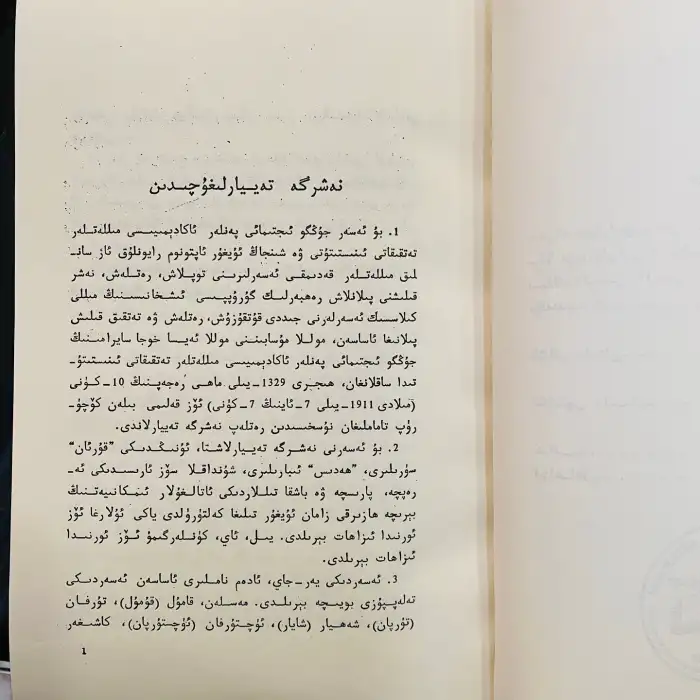 نەشرگە تەييارلىغۇچىدىن
1. بۇ ئەسەر جۇڭگو ئىجتىمائى پەنلەر ئاكادېمىيىسى مىللەتلەر
تەتقىقاتى ئىنستىتۇتى ۋە شىنجاڭ ئۇيغۇر ئاپتونوم رايونلۇق ئاز سان-
لىق مىللەتلەر قەدىمقى ئەسەرلىرىنى توپلاش، رەتلەش، نەشر
قىلىشنى پىلانلاش رەھبەرلىك گۇرۇپپىسى ئىشخانىسىنىڭ مىللى
كلاسسىك ئەسەرلەرنى جىددى قۇتقۇزۇش، رەتلەش ۋە تەتقىق قىلىش
پىلانىغا ئاساسەن، موللا مۇسابىننى موللا ئەيسا خوجا سايرامىنىڭ
جۇڭگو ئىجتىمائى پەنلەر ئاكادېمىيىسى مىللەتلەر تەتقىقاتى ئىنستىتۇ-
تىدا ساقلانغان، ھىجىرى 1329-يىلى ماھى رەجەپنىڭ 10-كۈنى
(مىلادى 1911-يىلى 7-ئاينىڭ 7-كۈنى) ئۆز قەلىمى بىلەن كۆچۈ-
رۈپ تاماملىغان نۇسخىسىدىن رەتلەپ تەييارلاندى.
2. بۇ ئەسەرنى نەشرگە تەييارلاشتا، ئۇنىڭدىكى “قۇرئان”
سۈرىلىرى، “ھەدىس” ئىبارىلىرى، شۇنداقلا سۆز ئارىسىدىكى ئە-
رەپچە، پارىسچە ۋە باشقا تىللاردىكى ئاتالغۇلار ئىمكانىيەتنىڭ
بېرىچە ھازىرقى زامان ئۇيغۇر تىلىغا كەلتۈرۈلدى ياكى ئۇلارغا ئۆز
ئورنىدا ئىزاھات بېرىلدى. يىل، ئاي، كۈنلەرگىمۇ ئۆز ئورنىدا
ئىزاھات بېرىلدى.
3. ئەسەردىكى يەر-جاي، ئادەم ناملىرى ئاساسەن ئەسەردىكى
تەلەپپۇزى بويىچە بېرىلدى. مەسىلەن، قامۇل (قۇمۇل)، تۇرفان
(تۇرپان)، شەھيار (شايار)، ئۇچتۇرفان (ئۇچتۇرپان)، كاشىغەر
1